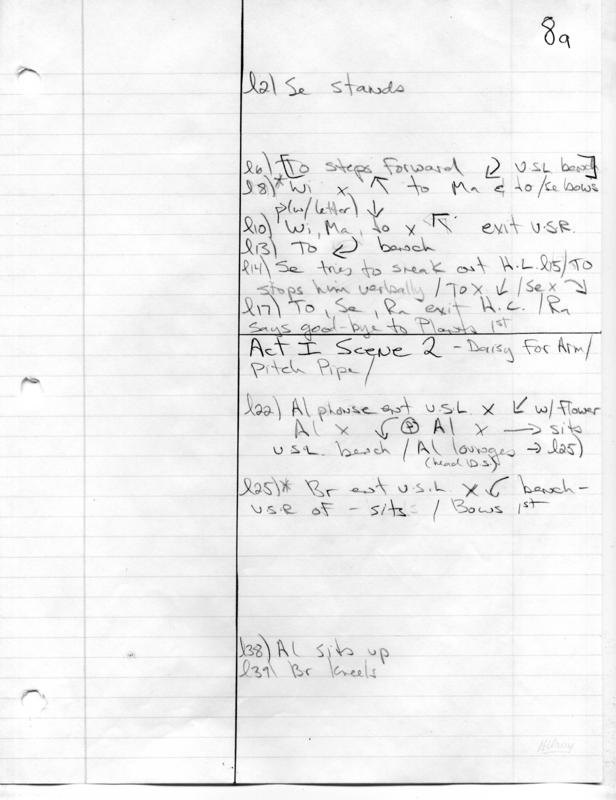 8a
l2) Se stands
l6) [To steps forward ↙ U.S.L bench]
l8)* Wi x ↖ to Ma & to/Se bows
p(w/letter) ↓
l10) Wi, Ma, to x ↖ exit U.S.R.
l13) To ↩ bench
l14) Se tries to sneak out H.L. l15/TO
stops him verbally / To x ↙ / Se x ↘
l17) To, Se, Ra exit H.C. / Ra
says good-bye to Plants 1st
Act I Scene 2 - Daisy For Arm/
Pitch Pipe/
l22) Alphonse ent U.S.L x ↙ w/flower
Al x ↙ ⊕ Al x → sits
U.S.L. bench / Al lounges → l25)
(head D.S.)
l25)* Br ent U.S.L x ↙ bench -
U.S.R of - sits / Bows 1st
l38) Al sits up
l39) Br kneels
Hilroy